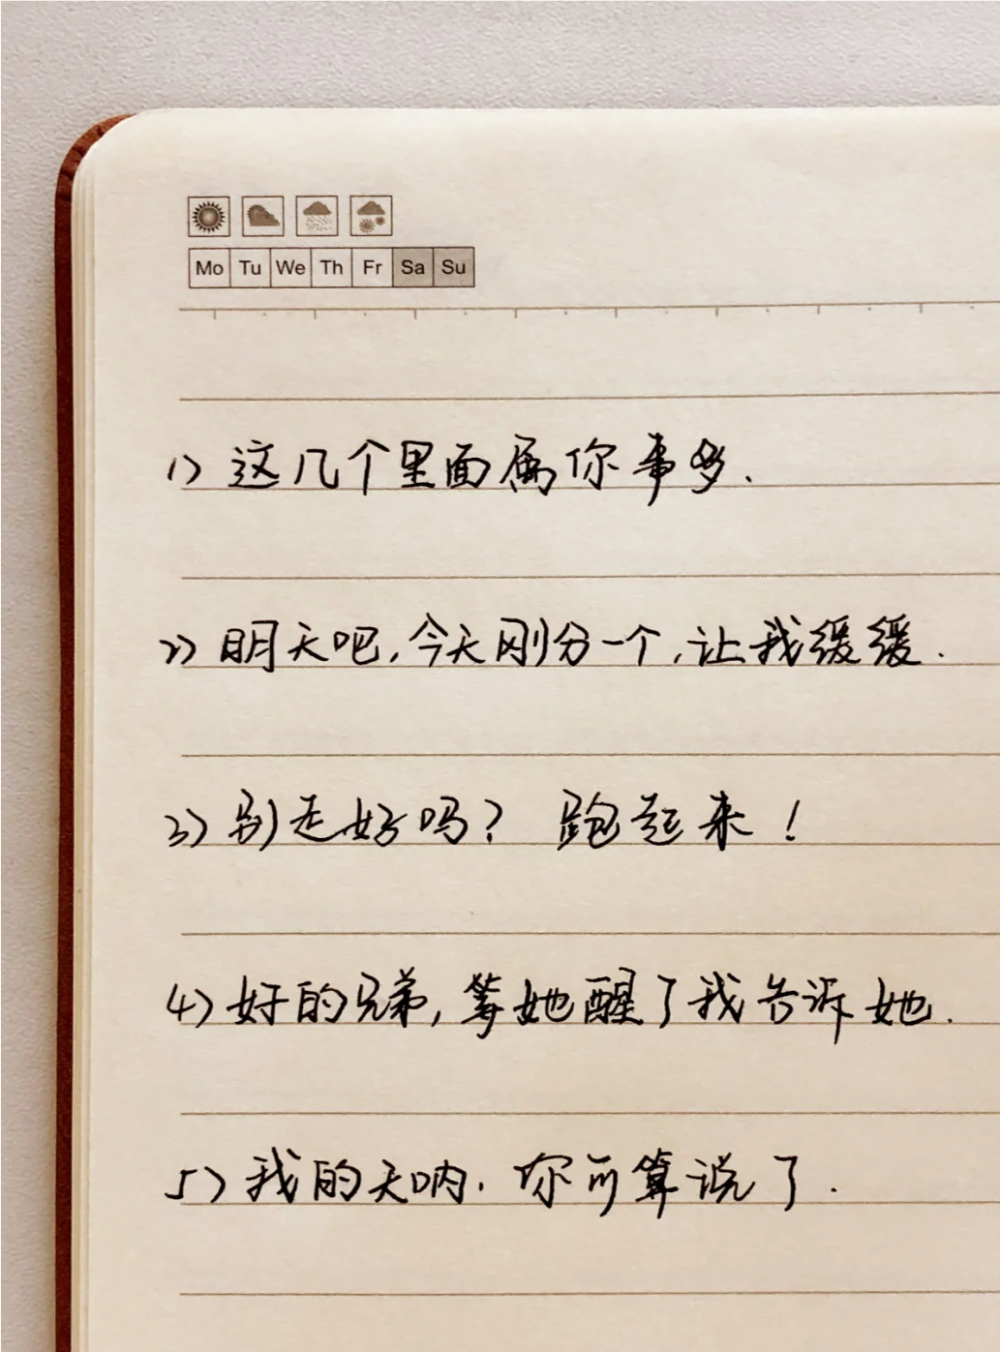 Mo Tu We Th Fr Sa Su
1) 这几个里面属你事多.
2) 明天吧,今天刚分一个,让我缓缓.
3) 别走好吗? 跑起来!
4) 好的兄弟,等她醒了我告诉她.
5) 我的天呐.你可算说了.